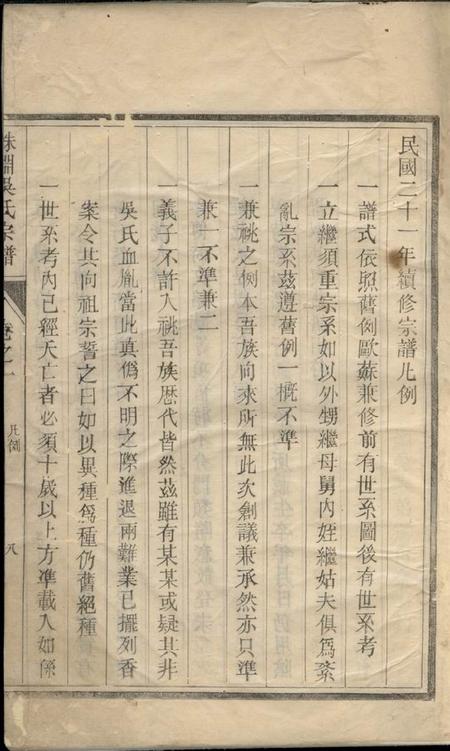 民國二十一年續修宗譜凡例
一譜式依照舊例歐蘇兼修前有世系圖後有世系考
一立繼須重宗系如以外甥繼母舅內姪繼姑夫俱爲紊
亂宗系茲遵舊例一概不準
一兼祧之例本吾族向來所無此次創議兼承然亦只準
兼一不準兼二
一義子不許入祧吾族歷代皆然茲雖有某某或疑其非
吳氏血胤當此真僞不明之際進退兩難業已擺列香
案令其向祖宗誓之曰如以異種爲種仍舊絕種
一世系考內已經夭亡者必須十歲以上方準載入如係
吳氏宗譜
卷之一
凡例
八